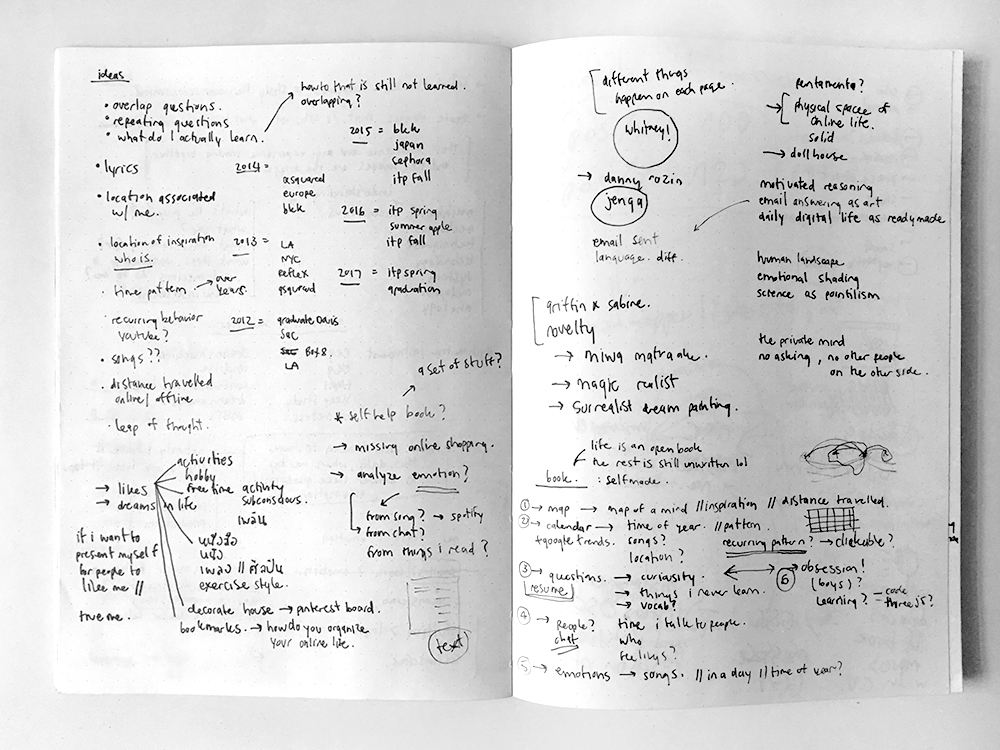 ideas
how to that is still not learned.
overlapping?
• overlap qustions.
• repeating questions
• what do I actually learn.
• lyrics
• location associated
w/ me.
• location of inspiration
who is.
• time pattern → over
years.
• recurring behavior
youtube?
• songs??
• distance travelled
online / offline
• leap of thought.
2015 = bkk
japan
sephora
itp fall
2014 =
asquared
europe
bkk
2016 = itp spring
summer apple
itp fall
2013 = LA
NYC
Reflex
asquared
2017 = itp spring
graduation
2012 = graduate Davis
Sac
Box8.
LA
a set of stuff?
* self help book?
→ missing online shopping.
→ analyze emotion?
from song? → spotify
from chat?
from things i read?
text
→ likes
→ dreams in life
activities
hobby
free time activity
subconscious.
เพลิน
หนังสือ
หนัง
เพลง // ศิลปิน
exercise style.
decorate house → pinterest board.
bookmarks. → how do you organize
your online life.
if i want to
present myself
for people to
like me //
true me.
different things
happen on each page.
whitney!
→ danny rozin
jenga
email sent
language. diff.
griffin x sabine.
novelty
→ miwa matreyek.
→ magic realist
→ surrealist dream painting.
pentamento?
→ physical space of
online life.
solid
→ dollhouse
motivated reasoning
email answering as art
daily digital life as readymade
human landscape
emotional shading
science as pointilism
the private mind
no asking, no other people
on the other side.
life is an open book
the rest is still unwritten lol
book. : selfmade.
① → map → map of a mind // inspiration // distance travelled.
② → calendar → time of year. // pattern.
+google trends. songs? recurring pattern? → clickable?
location?
③ → questions. → curiosity.
resume → things i never learn.
→ vocab?
⑥ → obsession!
(boys)?
learning? – code
three js?
④ → people? time i talk to people.
chat who
feelings?
⑤ → emotions → songs. // in a day // time of year?